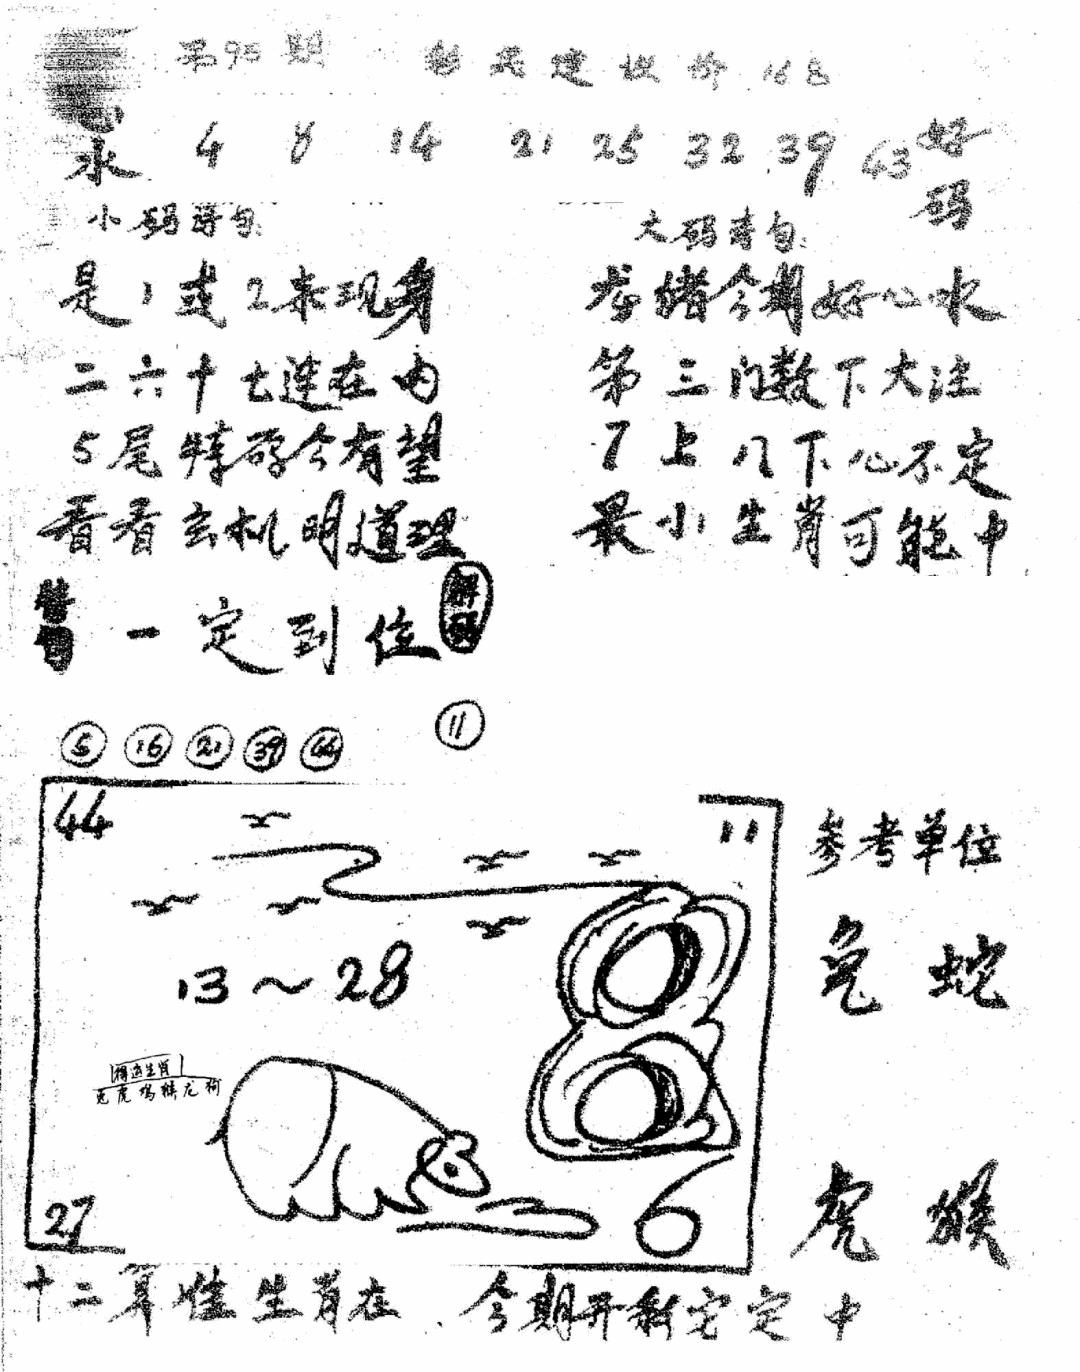 第95期 彩民建议价168
心水 4 8 14 21 25 32 39 43 好码
小码诗句: 大码诗句:
是1或2来现身 龙猪今期好心水
二六十七连在内 第三门数下大注
5尾特码今有望 7上八下心不定
看看玄机明道理 最小生肖可能中
一定到位 解码
5 16 21 39 44 11
44 11
参考单位
13~28
兔 蛇
精选生肖
兔虎鸡猴龙狗
27 6
虎 猴
十二算准生肖在 今期开彩它定中